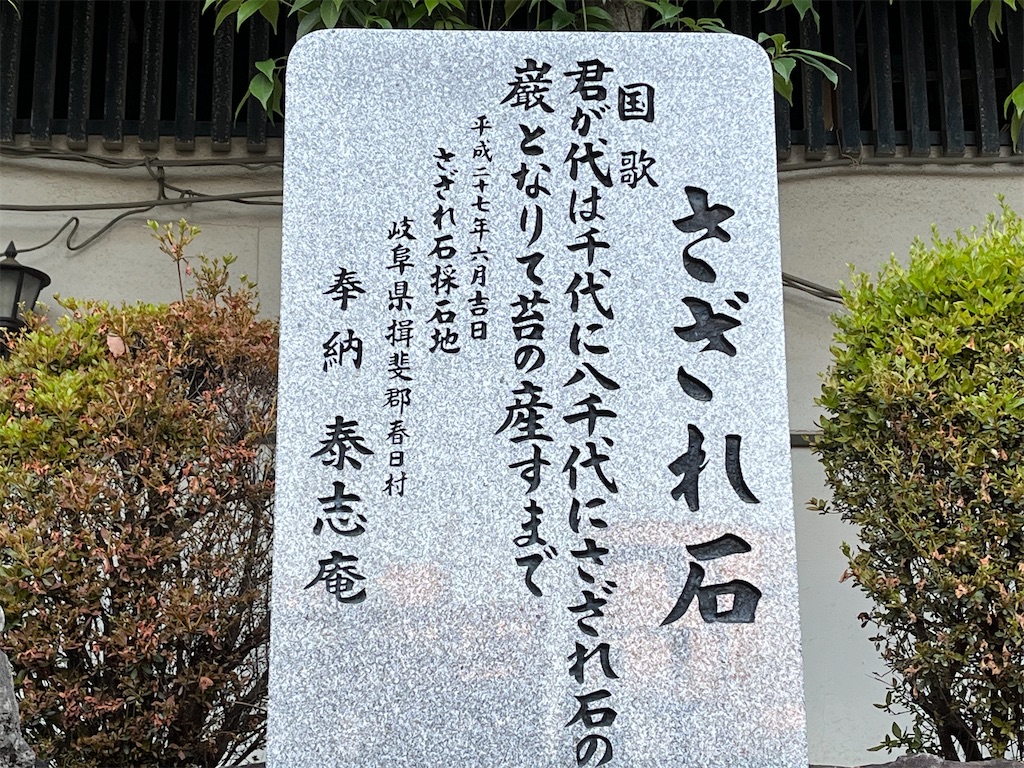 さざれ石
国歌
君が代は千代に八千代にさざれ石の
巌となりて苔の産すまで
平成二十七年六月吉日
さざれ石採石地
岐阜県揖斐郡春日村
奉納 泰志庵